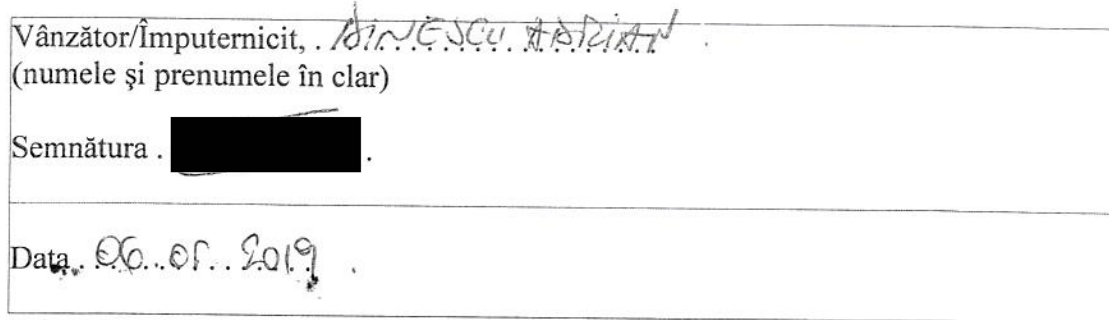 Vânzător/Împuternicit, . DINESCU ADRIAN .
(numele şi prenumele în clar)
Semnătura . .
Data . 06.05.2019 .